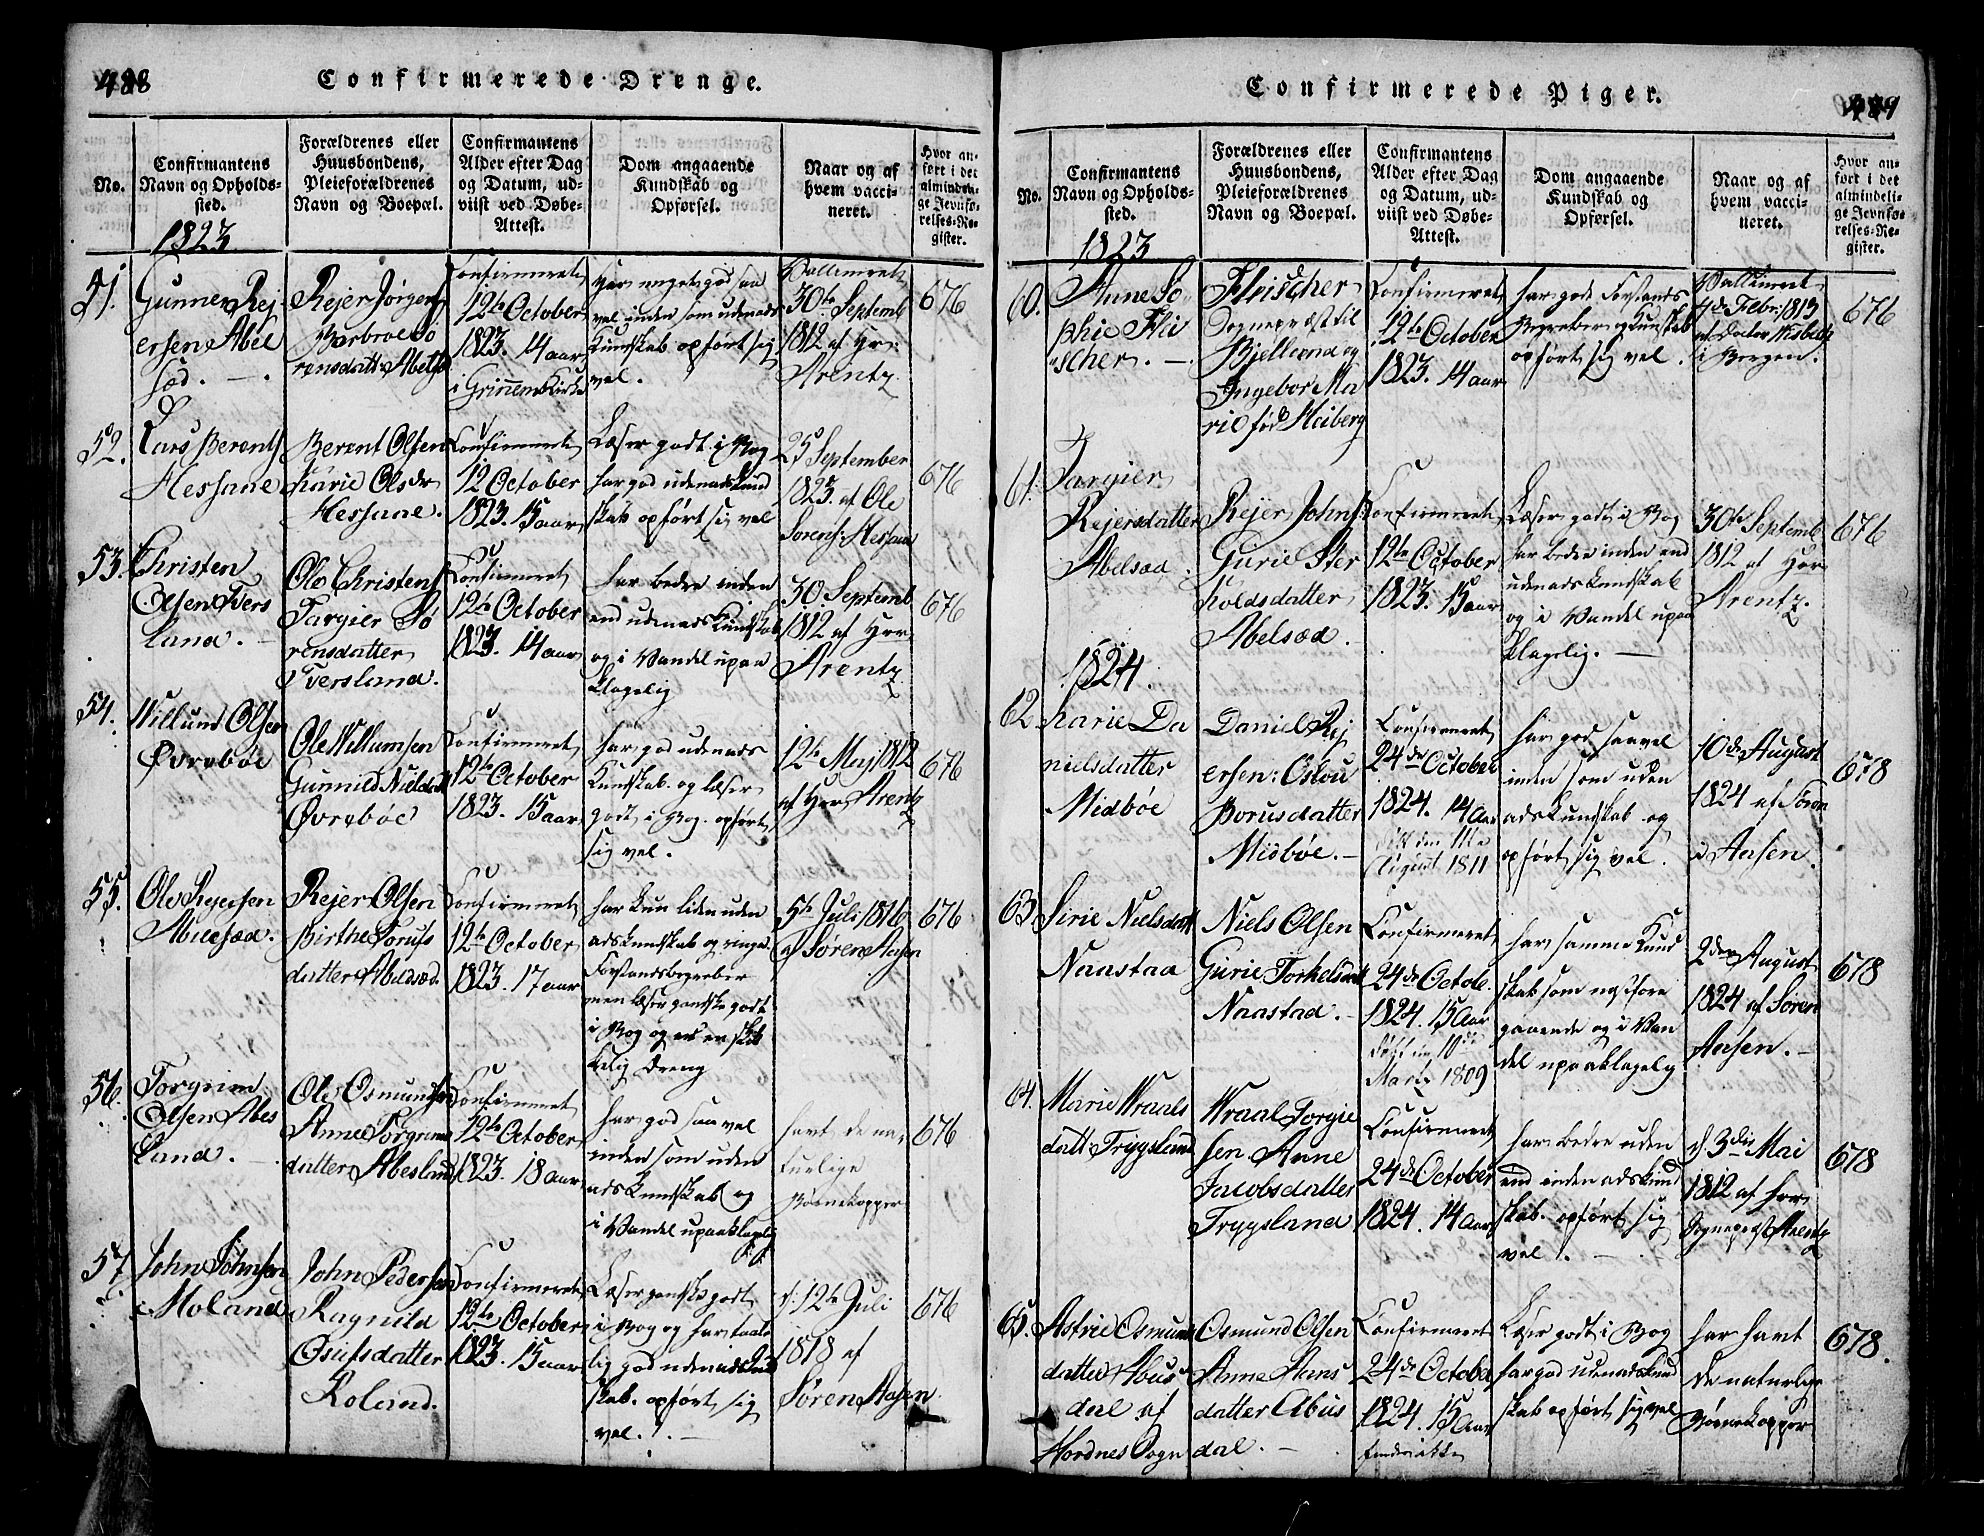 488
Confirmerede Drenge.
No.
Confirmantens
Navn og Opholds-
sted.
Forældrenes eller
Huusbondens,
Pleieforældrenes
Navn og Boepæl.
Confirmantens
Alder efter Dag
og Datum, ud-
viist ved Døbe-
Attest.
Dom angaaende
Kundskab og
Opførsel.
Naar og af
hvem vacci-
neret.
Hvor an-
ført i det
almindeli-
ge Jevnfø-
relses-Re-
gister.
1823
51.
Gunner Rej-
ersen Abel
sæd.
Rejer Jørgens
Barbroe Sø
rensdatt: Abels
Confirmeret
12te October
1823. 14 aar
i Grinnems Kirke
har meget god saa
vel inden som udenads
Kundskab opført sig
vel.
Vaccineret
30te Septemb
1812 af Hr:
Arentz.
676
52.
Lars Berents
Hessane
Berent Olsen
Karie Olsdr
Hessane.
Confirmeret
12 October
1823. 15 aar
Læser godt i Bog
har god udenads Kund
skab opført sig vel
25 September
1823 af Ole
Sørens: Hessane
676
53.
Christen
Olsen Tvers
land.
Ole Christens
Targier Sø
rensdatter
Tversland.
Confirmeret
12te October
1823. 14 aar
har bedre inden
end udenads Kundskab
og i Vandel upaa
klagelig
30 Septemb
1812 af Hrr
Arentz
676
54.
Willund Olsen
Øvrebøe
Ole Willumsen
Gunnild Nielsdatt
Øvrebøe
Confirmeret
12te October
1823. 15 aar
har god udenads
Kundskab og læser
godt i Bog. opført
sig vel.
12te Maj 1812
af Hrr Arentz
676
55.
Ole Rejersen
Abelsæd.
Rejer Olsen
Birthe Torufs
datter Abelsæd.
Confirmeret
12te October
1823. 17 aar
har kun liden uden
adskundskab og ringe
Forstandsbegreber
men læser ganske godt
i Bog og er en skik
kelig Dreng
5te Juli 1816
af Søren Aasen
676
56.
Torgrim
Olsen Abes
land.
Ole Osmundsen
Anne Torgrims
datter Abesland
Confirmeret
12te October
1823. 18 aar
har god saavel
inden som uden
ads Kundskab og
i Vandel upaaklagelig
havt de na
turlige
Børnekopper
676
57.
John Johnsen
Moland
John Pedersen
Ragnild
Osufsdatter
Roland.
Confirmeret
12te October
1823. 15 aar
Læser ganske godt
i Bog og har taale
lig god udenads Kund
skab. opført sig
vel.
d: 12te Juli
1818 af
Søren Aasen
676
489
Confirmerede Piger.
No.
Confirmantens
Navn og Opholds-
sted.
Forældrenes eller
Huusbondens,
Pleieforældrenes
Navn og Boepæl.
Confirmantens
Alder efter Dag
og Datum, ud-
viist ved Døbe-
Attest.
Dom angaaende
Kundskab og
Opførsel.
Naar og af
hvem vacci-
neret.
Hvor an-
ført i det
almindeli-
ge Jevnfø-
relses-Re-
gister.
1823
60.
Anne So
phie Flei
scher.
Fleischer
Sognepræst til
Bjelland og
Ingebor Ma
rie fød Heiberg
Confirmeret
12te October
1823. 14 aar
har gode Forstands
Begreber og Kundskab
opført sig vel.
Vaccineret
4de Febr: 1813
af Doctor
i Bergen.
676
61.
Targier
Rejersdatter
Abelsæd.
Rejer Johns:
Gurie Ster
koldsdatter
Abelsæd.
Confirmeret
12te October
1823. 15 aar
Læser godt i Bog
har bedre inden end
udenads Kundskab
og i Vandel upaa
klagelig.
30te Septemb
1812 af Hrr
Arentz.
676
1824.
62
Karie Da
nielsdatter
Midbøe
Daniel Rej
ersen: Oslou
Borusdatter
Midbøe.
Confirmeret
24de October
1824. 14 Aar
Født den 11te
August 1811
har god saavel
inden som uden
adskundskab og
opført sig vel.
10de August
1824 af Søren
Aasen.
678
63.
Sirie Nielsdatt
Naastad
Niels Olsen
Gurie Torkelsdatt
Naastad.
Confirmeret
24de Octobe.
1824. 15 Aar
Født den 10de
Marts 1809
har samme Kund
skab som næstfore
gaaende og i Van
del upaaklagelig
2den August
1824 af Søren
Aasen.
678
64.
Marie Wraals
datt Trygsland
Wraal Torgie
sen Anne
Jacobsdatter
Trygsland
Confirmeret
24de October
1824. 14 Aar
har bedre uden
end indenadskund
skab. opført sig
vel.
d. 3die Mai
1812 af Hrr
Sognepræst Arentz
678
65.
Astrie Osmun
datter Abus
dal af
Hordnes Sogn
Osmund Olsen
Anne Aans
datter Abus
dal.
Confirmeret
24de October
1824. 15 Aar
findes ikke
Læser godt i Bog
har god udenadskund
skab opført sig vel
har havt
de naturlige
Børnekopper
678.